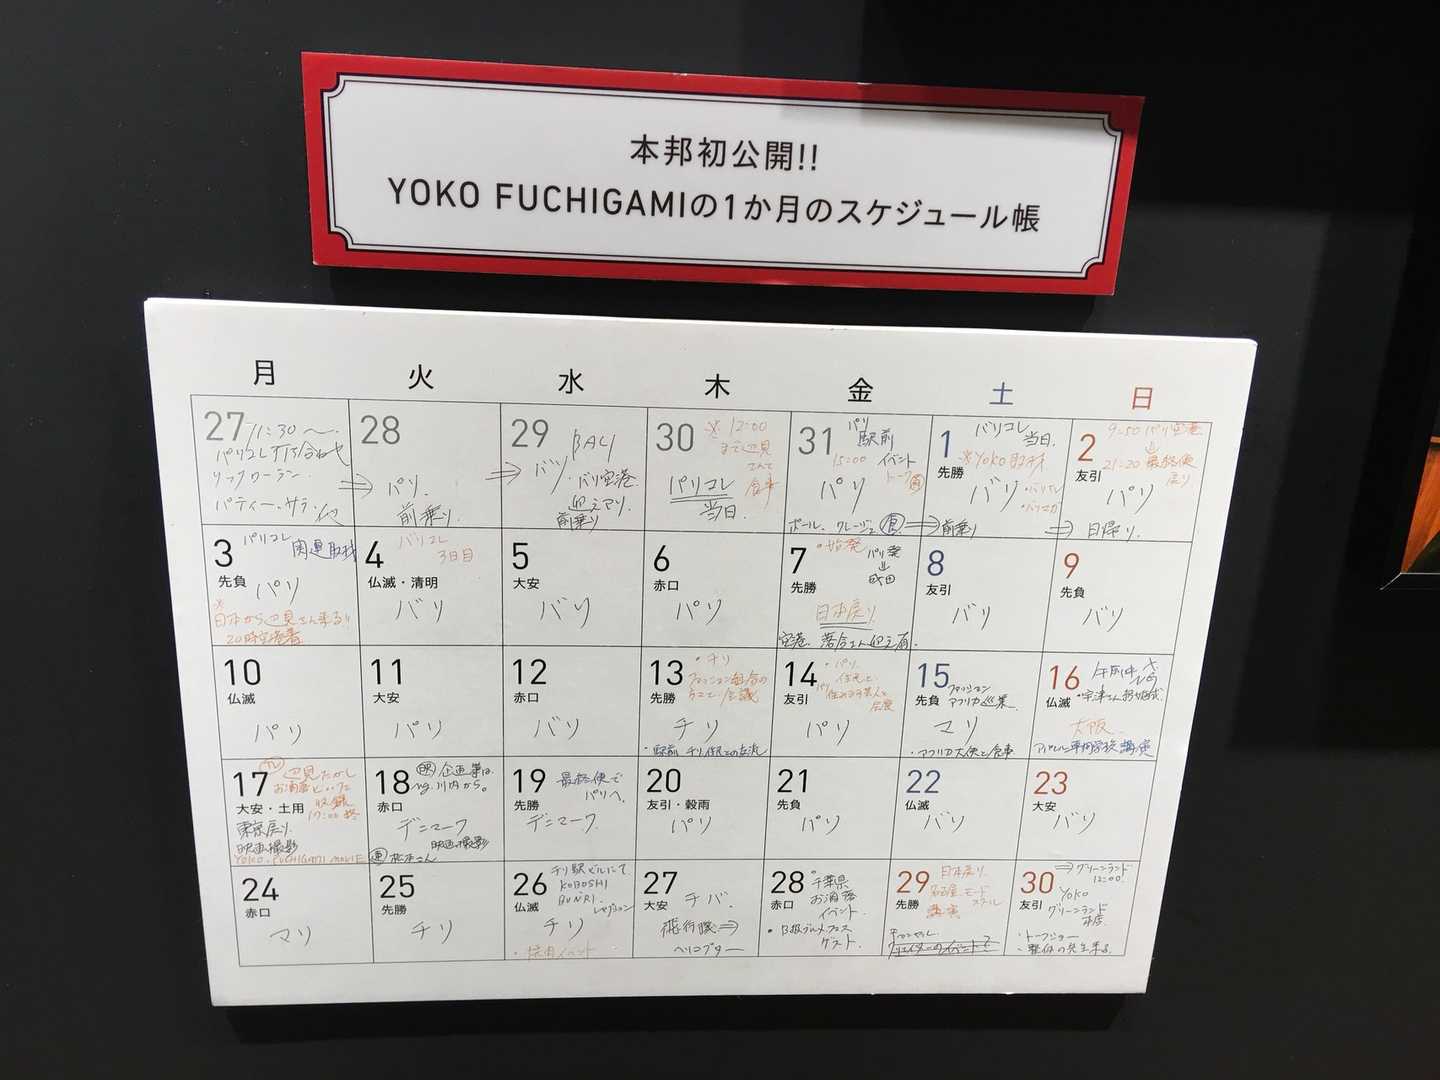 本邦初公開!!
YOKO FUCHIGAMIの1か月のスケジュール帳
月 火 水 木 金 土 日
27 11:30〜
パリコレ打ち合わせ
28
パリ
前乗り
29 BALI
バリ
・バリ空港
迎えアリ
前乗り
30 ※12:00
まで辺見
さんで
食事
パリコレ
当日.
31 パリ
駅前
15:00 イベント
パリ
1 先勝
バリコレ
当日.
※YOKO取材
バリ
前乗り
2 友引
9:50 パリ空港
21:20 最終便
戻り.
パリ
日帰り.
3 先負
パリコレ
関連取材
パリ
※
日本から辺見さん来る!!
20時空港着
4 仏滅・清明
バリコレ
3日目
バリ
5 大安
バリ
6 赤口
パリ
7 先勝
・始発
パリ発
⇓
成田
日本戻り
空港 落合さん迎え有.
8 友引
バリ
9 先負
バリ
10 仏滅
パリ
11 大安
パリ
12 赤口
バリ
13 先勝
・チリ
チリ
14 友引
・パリ
パリ
15 先負
ファッション
アフリカ巡業
マリ
・アフリカ大使と食事
16 仏滅
大阪
アパレル専門学校講演
17 大安・土用
辺見たかし
収録
17:00 終
東京戻り
映画撮影
YOKO FUCHIGAMI MOVIE
18 赤口
企画等は
mg.川内から。
デンマーク
映画撮影
松本さん
19 先勝
最終便で
パリへ.
デンマーク
20 友引・穀雨
パリ
21 先負
パリ
22 仏滅
バリ
23 大安
バリ
24 赤口
マリ
25 先勝
チリ
26 仏滅
チリ駅ビルにて
KOBOSHI
BUNRI.
レセプション
チリ
27 大安
チバ
飛行機⇒
ヘリコプター
28 赤口
・千葉県
お洒落
イベント.
・B級グルメフェス
ゲスト.
29 先勝
日本戻り.
名古屋モード
スクール
講演
キャンセル
30 友引
⇒グリーンランド
12:00.
YOKO
グリーンランド
本店.
・トークショー
・整体の先生来る.